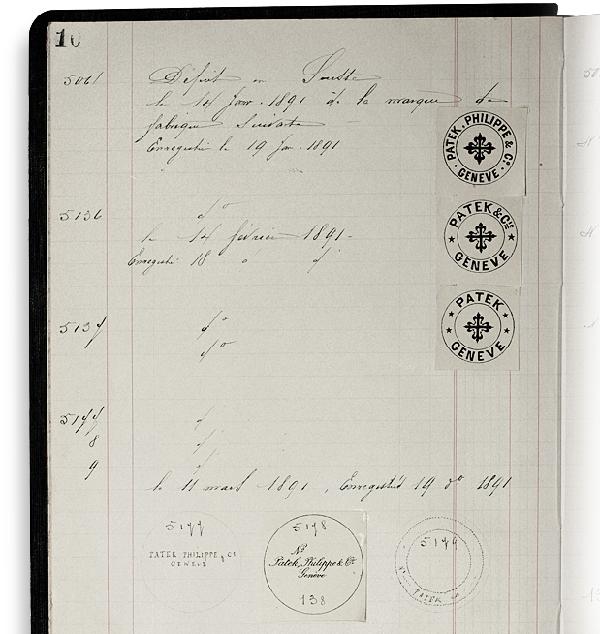 10
5061 Dépôt en Suisse
le 14 Janv. 1891 de la marque de
fabrique suivante
Enregistré le 19 Jan. 1891
PATEK, PHILIPPE & Cº
GENEVE
5136 dº
le 14 février 1891
Enregistré 18 dº
PATEK & Cie
GENEVE
5137 dº
dº
PATEK
GENEVE
5177
8
9
le 11 mars 1891, Enregistré 19 dº 1891
5177
PATEK PHILIPPE & Cº
GENEVE
5178
Nº
Patek, Philippe & Cie
Genève
138
5179
PATEK